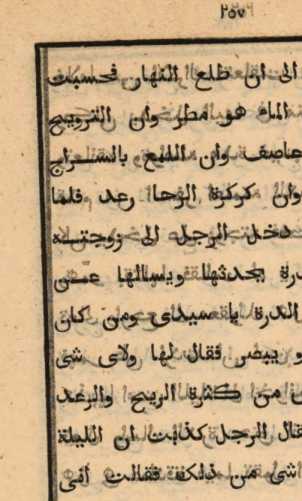 ٢٥٧
الى ان طلع النهار فحسبت
الماء هو مطر وان الترويح
عاصف وان اللمع بالسراج
وان كركرة الرحا رعد فلما
دخل الرجل الى زوجته
يحدثها ويسالها عن
الدرة يا سيدى ومن كان
يبصر فقال لها ولاى شى
من كثرة الريح والرعد
قال الرجل كذبت ان الليلة
شى من ذلك فقالت